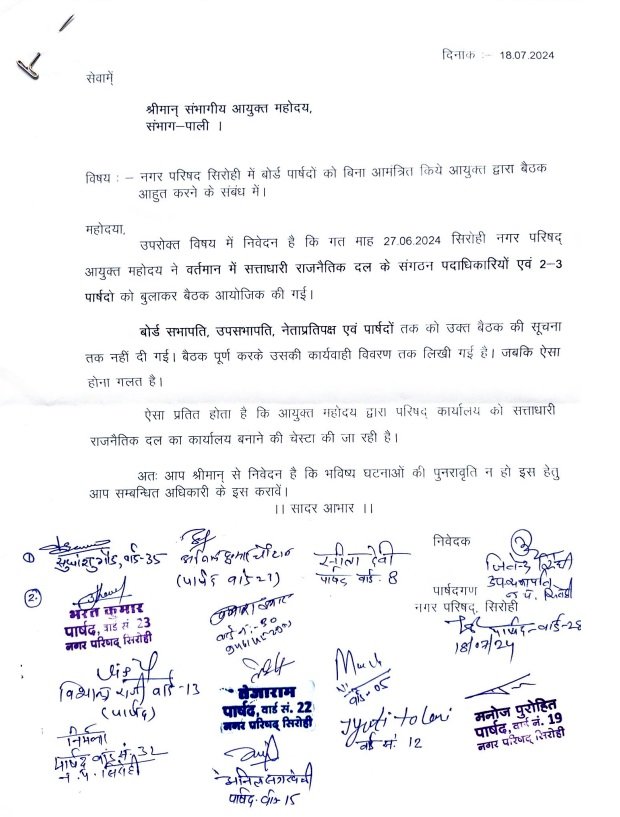 दिनाक :– 18.07.2024
सेवामें
श्रीमान् संभागीय आयुक्त महोदय,
संभाग–पाली ।
विषय : – नगर परिषद सिरोही में बोर्ड पार्षदों को बिना आमंत्रित किये आयुक्त द्वारा बैठक
आहुत करने के संबंध में।
महोदया,
उपरोक्त विषय में निवेदन है कि गत माह 27.06.2024 सिरोही नगर परिषद्
आयुक्त महोदय ने वर्तमान में सत्ताधारी राजनैतिक दल के संगठन पदाधिकारियों एवं 2–3
पार्षदो को बुलाकर बैठक आयोजिक की गई।
बोर्ड सभापति, उपसभापति, नेताप्रतिपक्ष एवं पार्षदों तक को उक्त बैठक की सूचना
तक नहीं दी गई। बैठक पूर्ण करके उसकी कार्यवाही विवरण तक लिखी गई है। जबकि ऐसा
होना गलत है।
ऐसा प्रतित होता है कि आयुक्त महोदय द्वारा परिषद् कार्यालय को सत्ताधारी
राजनैतिक दल का कार्यालय बनाने की चेस्टा की जा रही है।
अतः आप श्रीमान् से निवेदन है कि भविष्य घटनाओं की पुनरावृति न हो इस हेतु
आप सम्बन्धित अधिकारी के इस करावें।
।। सादर आभार ।।
निवेदक
पार्षदगण
नगर परिषद्, सिरोही
① सुधांशु गौड़, वार्ड-35
(पार्षद वार्ड 27)
सुनीता देवी
पार्षद वार्ड 8
जितेन्द्र सिंघी
उपसभापति
न.प. सिरोही
पार्षद-वार्ड-28
18/07/24
②
भरत कुमार
पार्षद, वार्ड सं. 23
नगर परिषद् सिरोही
वार्ड नं.-30
वार्ड-13
(पार्षद)
वेजाराम
पार्षद, वार्ड सं. 22
नगर परिषद् सिरोही
वार्ड-05
Jyoti
वार्ड सं. 12
मनोज पुरोहित
पार्षद, वार्ड नं. 19
नगर परिषद् सिरोही
निर्मला
पार्षद वार्ड सं. 32
न.प. सिरोही
पार्षद वार्ड 15